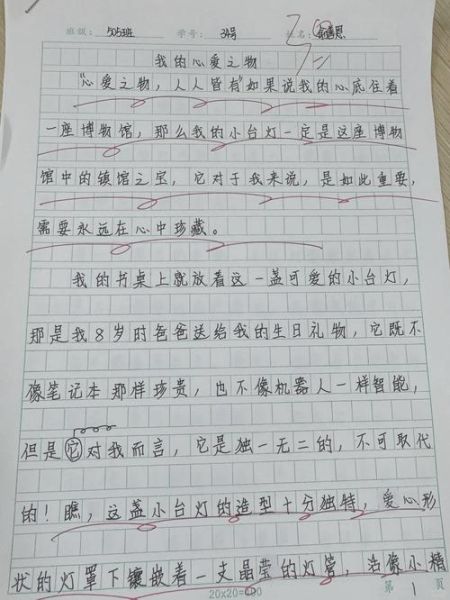 班级：505班 学号：34号 姓名：
我的心爱之物
"心爱之物，人人皆有"如果说我的心底住着
一座博物馆，那么我的小台灯一定是这座博物
馆中的镇馆之宝，它对于我来说，是如此重要，
需要永远在心中珍藏。
我的书桌上就放着这一盏可爱的小台灯，
那是我8岁时爸爸送给我的生日礼物，它既不
像笔记本那样珍贵，也不像机器人一样智能，
但是它对我而言，它是独一无二的，不可取代
的！瞧，这盏小台灯的造型十分独特，爱心形
状的灯罩下镶嵌着一支晶莹的灯管，活像小精
20x20=400 第 1 页